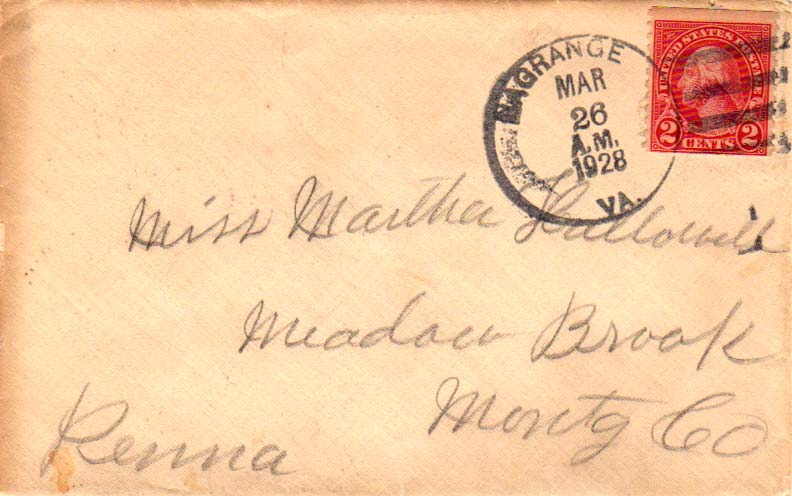 LAGRANGE
MAR
26
A.M.
1928
VA.
UNITED STATES POSTAGE
2 CENTS 2
Miss Martha Hallowell
Meadow Brook
Montg Co
Penna